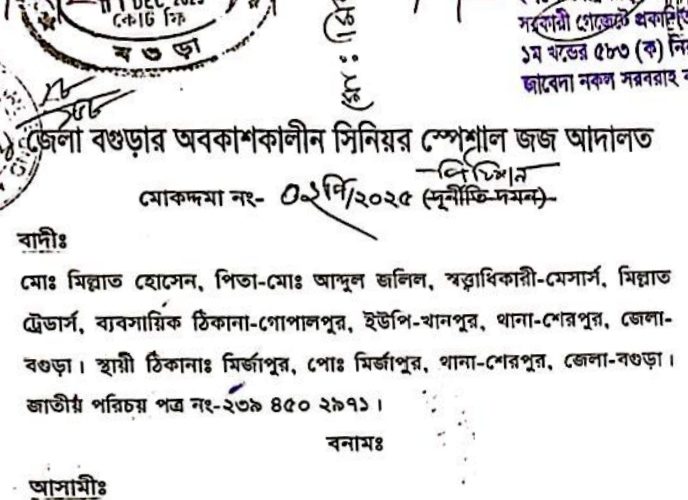 DEC
কোর্ট ফি
বগুড়া
সরকারী গেজেটে প্রকাশিত
১ম খন্ডের ৫৮৩ (ক) নি
জাবেদা নকল সরবরাহ
জেলা বগুড়ার অবকাশকালীন সিনিয়র স্পেশাল জজ আদালত
পিটিশন
মোকদ্দমা নং- ০২পি/২০২৫ (দূর্নীতি-দমন)
বাদীঃ
মোঃ মিল্লাত হোসেন, পিতা-মোঃ আব্দুল জলিল, স্বত্বাধিকারী-মেসার্স, মিল্লাত
ট্রেডার্স, ব্যবসায়িক ঠিকানা-গোপালপুর, ইউপি-খানপুর, থানা-শেরপুর, জেলা-
বগুড়া। স্থায়ী ঠিকানাঃ মির্জাপুর, পোঃ মির্জাপুর, থানা-শেরপুর, জেলা-বগুড়া।
জাতীয় পরিচয় পত্র নং-২৩৯ ৪৫০ ২৯৭১।
বনামঃ
আসামীঃ